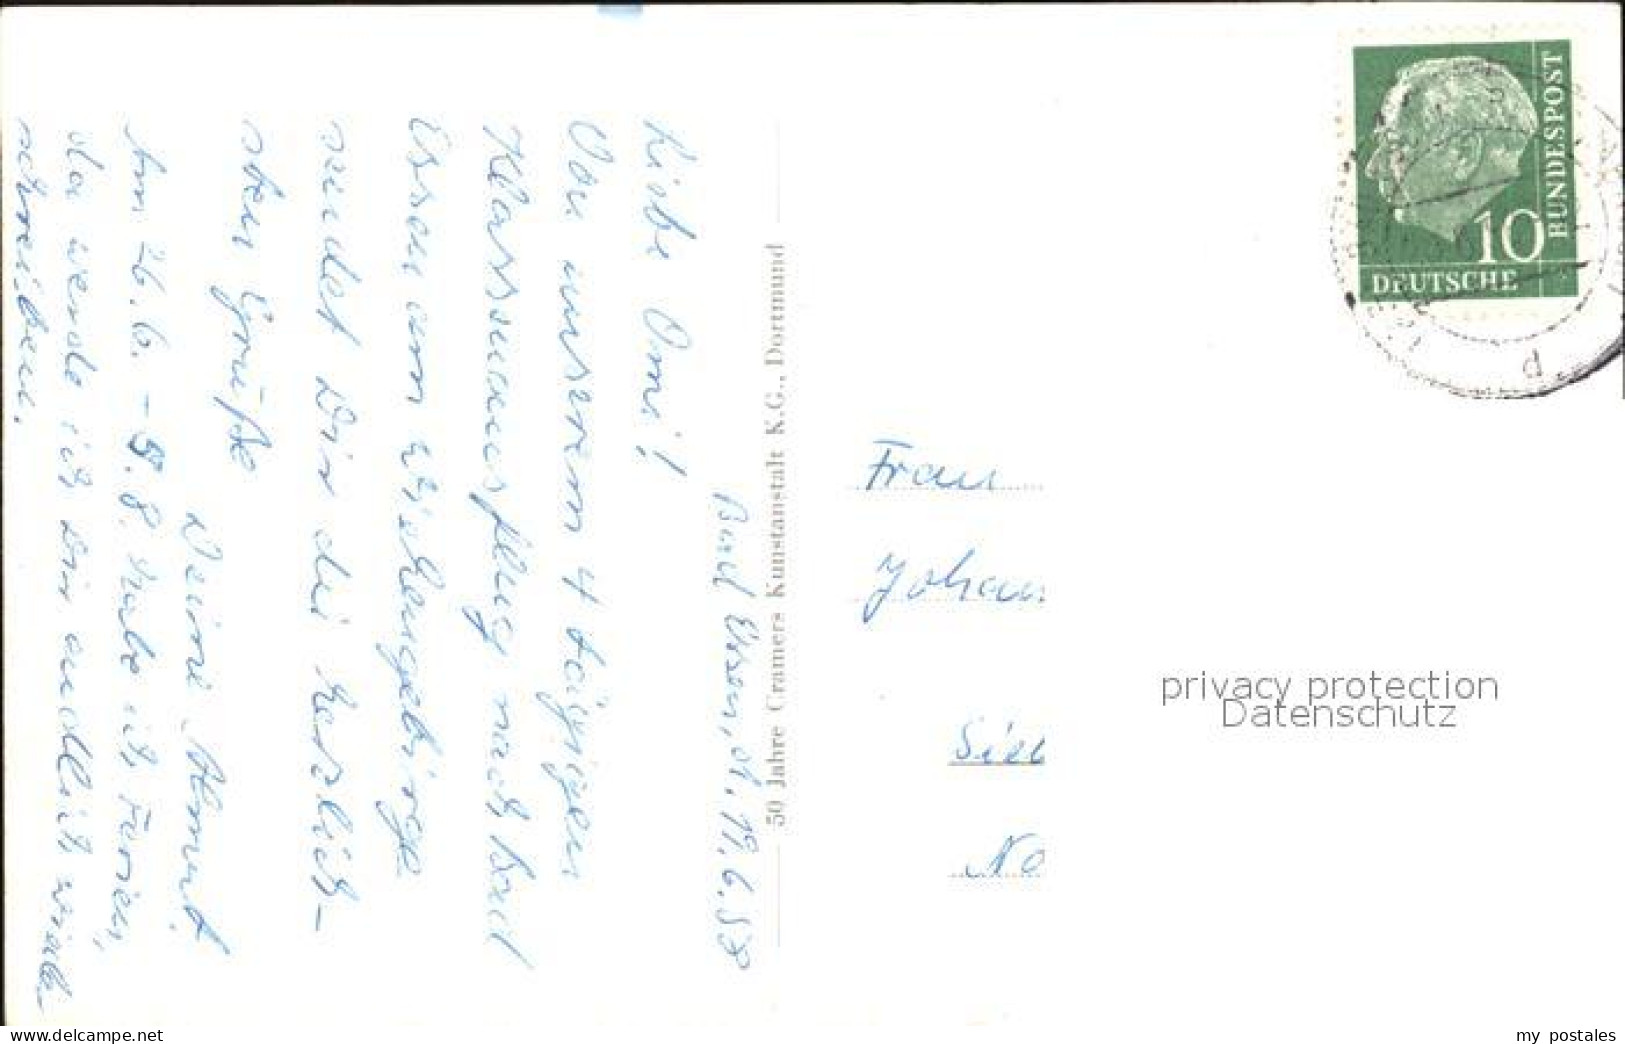 Bad Essen, d. 19.6.58
Liebe Omi!
Von unserem 4 tägigen
Klassenausflug nach Bad
Essen am Wiehengebirge
sendet Dir die herzlich-
sten Grüße
Deine Almut.
Am 26.6. - 5.8. habe ich Ferien,
da werde ich Dir endlich wieder
schreiben.
50 Jahre Cramers Kunstanstalt K.G., Dortmund
DEUTSCHE
BUNDESPOST
10
d
Frau
Johan
Sieb
No
privacy protection
Datenschutz
www.delcampe.net
my_postales